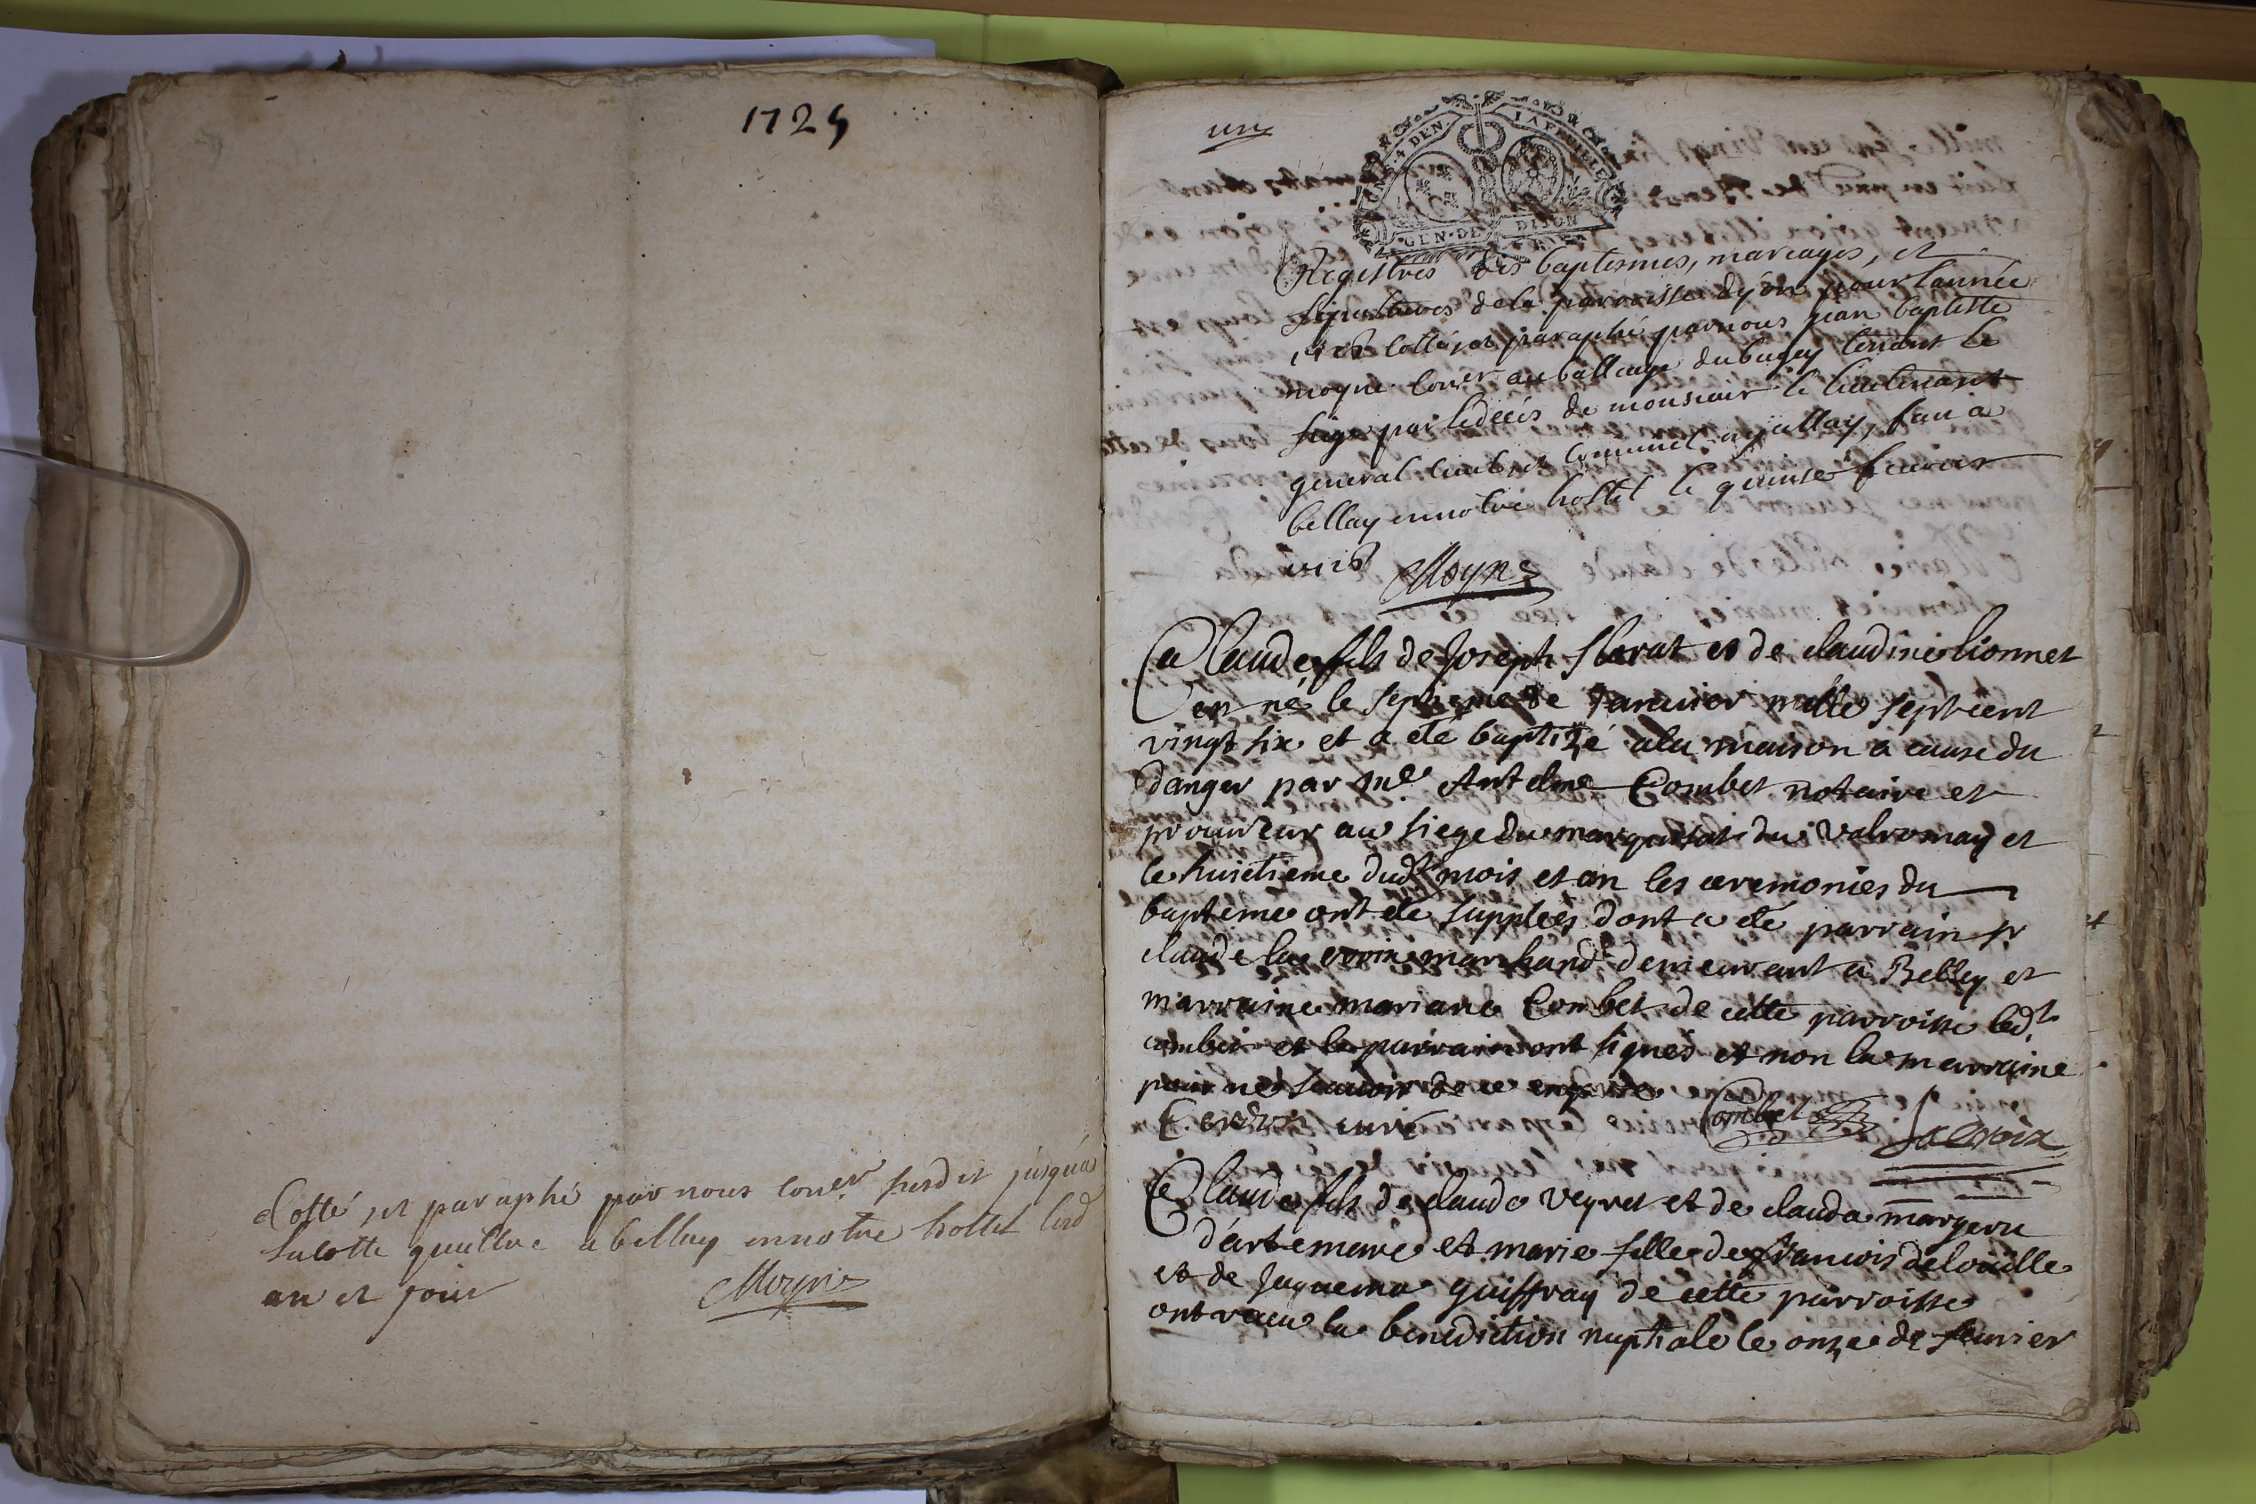 1725
Cotté, et paraphé par nous coner susdit jusqua
lacotte quattre a bellay en notre hostel lesd
an et jour Moyne
un
GEN DE DIJON
Registres des baptesmes, mariages, et
sepultures de la parroisse dyon pour lannée
1726 cottés, et paraphé par nous jean baptiste
moyne coner au balliage du bugey tenant le
siege par ledeces de monsieur le lieutenant
general civil, et criminel fait a
bellay en notre hostel le quinse feuvrier
1726 Moyne
Claude fils de Joseph florat et de claudine lionnet
est né le septieme de Januier mille sept cent
vingt six et a été baptizé a la maison a cause du
danger par me. Antelme Combet notaire et
procureur au siege du marquisat du valromay et
le huictieme dudt mois et an les ceremonies du
bapteme ont ete supplées dont a été parrain sr
claude lacroix marchand demeurant a Belley et
marraine mariane Combet de cette parroisse ledt
combet et le parrain ont signés et non la marraine
pour ne scauoir de ce enquise
curé Combet Lacroix
Claude fils de claude veyret et de clauda margeru
d'artemare et marie fille de francois delouille
et de Jaquema guiffray de cette parroisse
ont receu la benediction nuptiale le onze de feurier